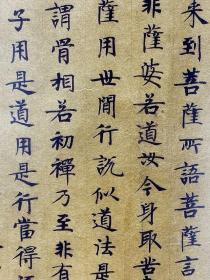 来到菩薩所語菩薩言
非薩婆若道汝今身取苦
薩用世閒行説似道法是
謂骨相若初禪乃至非有
子用是道用是行當得